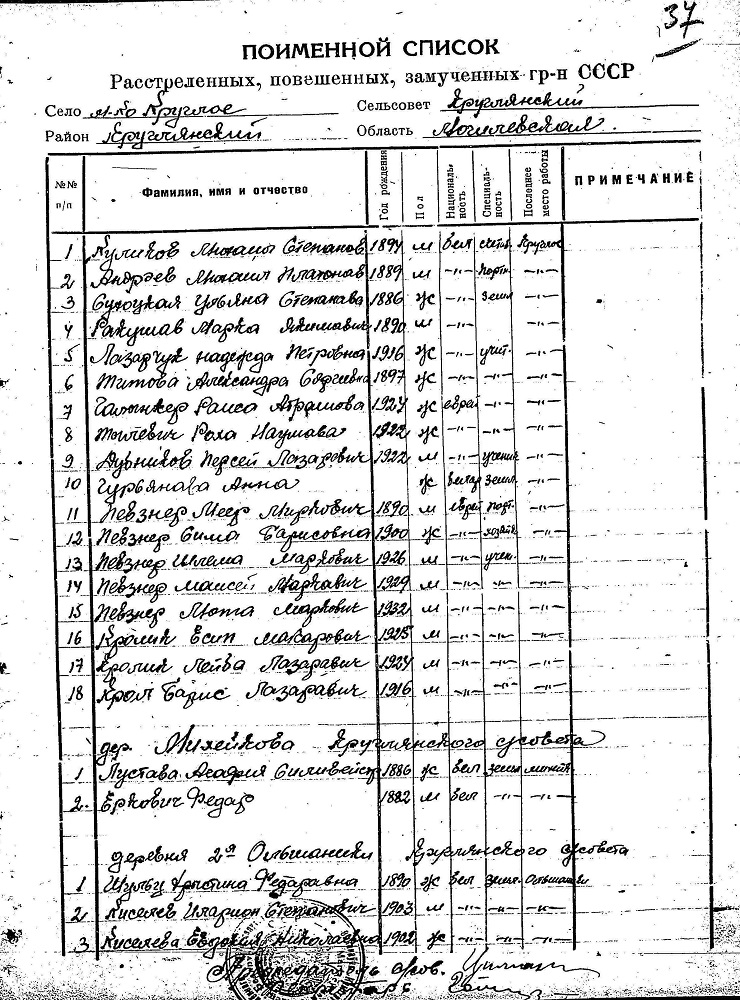 37
ПОИМЕННОЙ СПИСОК
Расстреленных, повешенных, замученных гр-н СССР
Село м-ко Круглое Сельсовет Круглянский
Район Круглянский Область Могилевская
№№ п/п Фамилия, имя и отчество Год рождения Пол Националь-ность Специаль-ность Последнее место работы ПРИМЕЧАНИЕ
1 Куликов Михаил Степанов 1894 м бел Круглое
2 Андрэев Михаил Платонов 1889 м -"- портн -"-
3 Сухоцкая Ульяна Степанава 1886 ж -"- земл -"-
4 Ракушав Марка Якимавич 1890 м -"- -"-
5 Лазарчук надежда Петровна 1916 ж -"- учит. -"-
6 Титова Александра Сергеевна 1897 ж -"- -"- -"-
7 Раиса Абрамова 1924 ж еврей -"- -"-
8 Роха Наумава 1922 ж -"- -"- -"-
9 Дубников Персей Лазаревич 1922 м -"- ученик -"-
10 Гурьянава Анна ж белар земл -"-
11 Певзнер Меер Миркович 1890 м еврей порт. -"-
12 Певзнер Сима Барисовна 1900 ж -"- хозяйк -"-
13 Певзнер Шлема Маркович 1926 м -"- учен. -"-
14 Певзнер Маисей Маркавич 1929 м -"- -"- -"-
15 Певзнер Маркович 1932 м -"- -"- -"-
16 Кролик Есип Макарович 1925 м -"- -"- -"-
17 Кролик Лейба Лазаравич 1924 м -"- -"- -"-
18 Крол Барис Лазаравич 1916 м -"- -"- -"-
дер. Михейкова Круглянского с/совета
1 Пустава Агафия Силивейстр 1886 ж бел земл
2. Еркович Федар 1882 м бел -"- -"-
деревня 2я Ольшаники Круглянского с/совета
1 Шульву Христина Федаравна 1890 ж бел земл. Ольшаники
2 Киселев Иларион Степанович 1903 м -"- -"- -"-
3 Киселева Евдокия Николаевна 1902 ж -"- -"- -"-
Председатель с/сов.
Секретарь